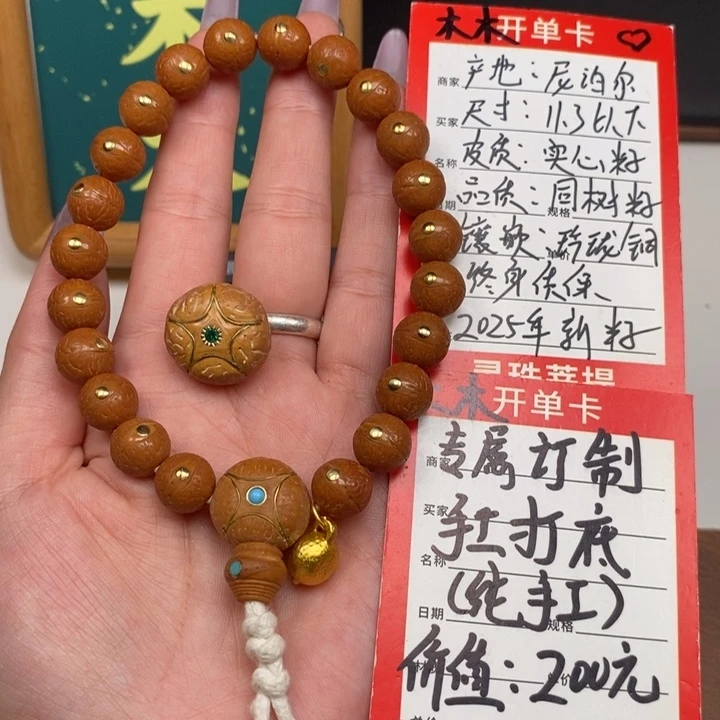 木木 开单卡
商家 产地：尼泊尔
买家 尺寸：11.3以下
名称 皮质：实心籽
日期 品质：同树籽 规格
镶嵌：玲珑铜 单价
终身质保
2025年新籽
灵珠菩提
木木 开单卡
商家 专属订制
买家 手工打底
名称 (纯手工)
日期 规格
价值：200元